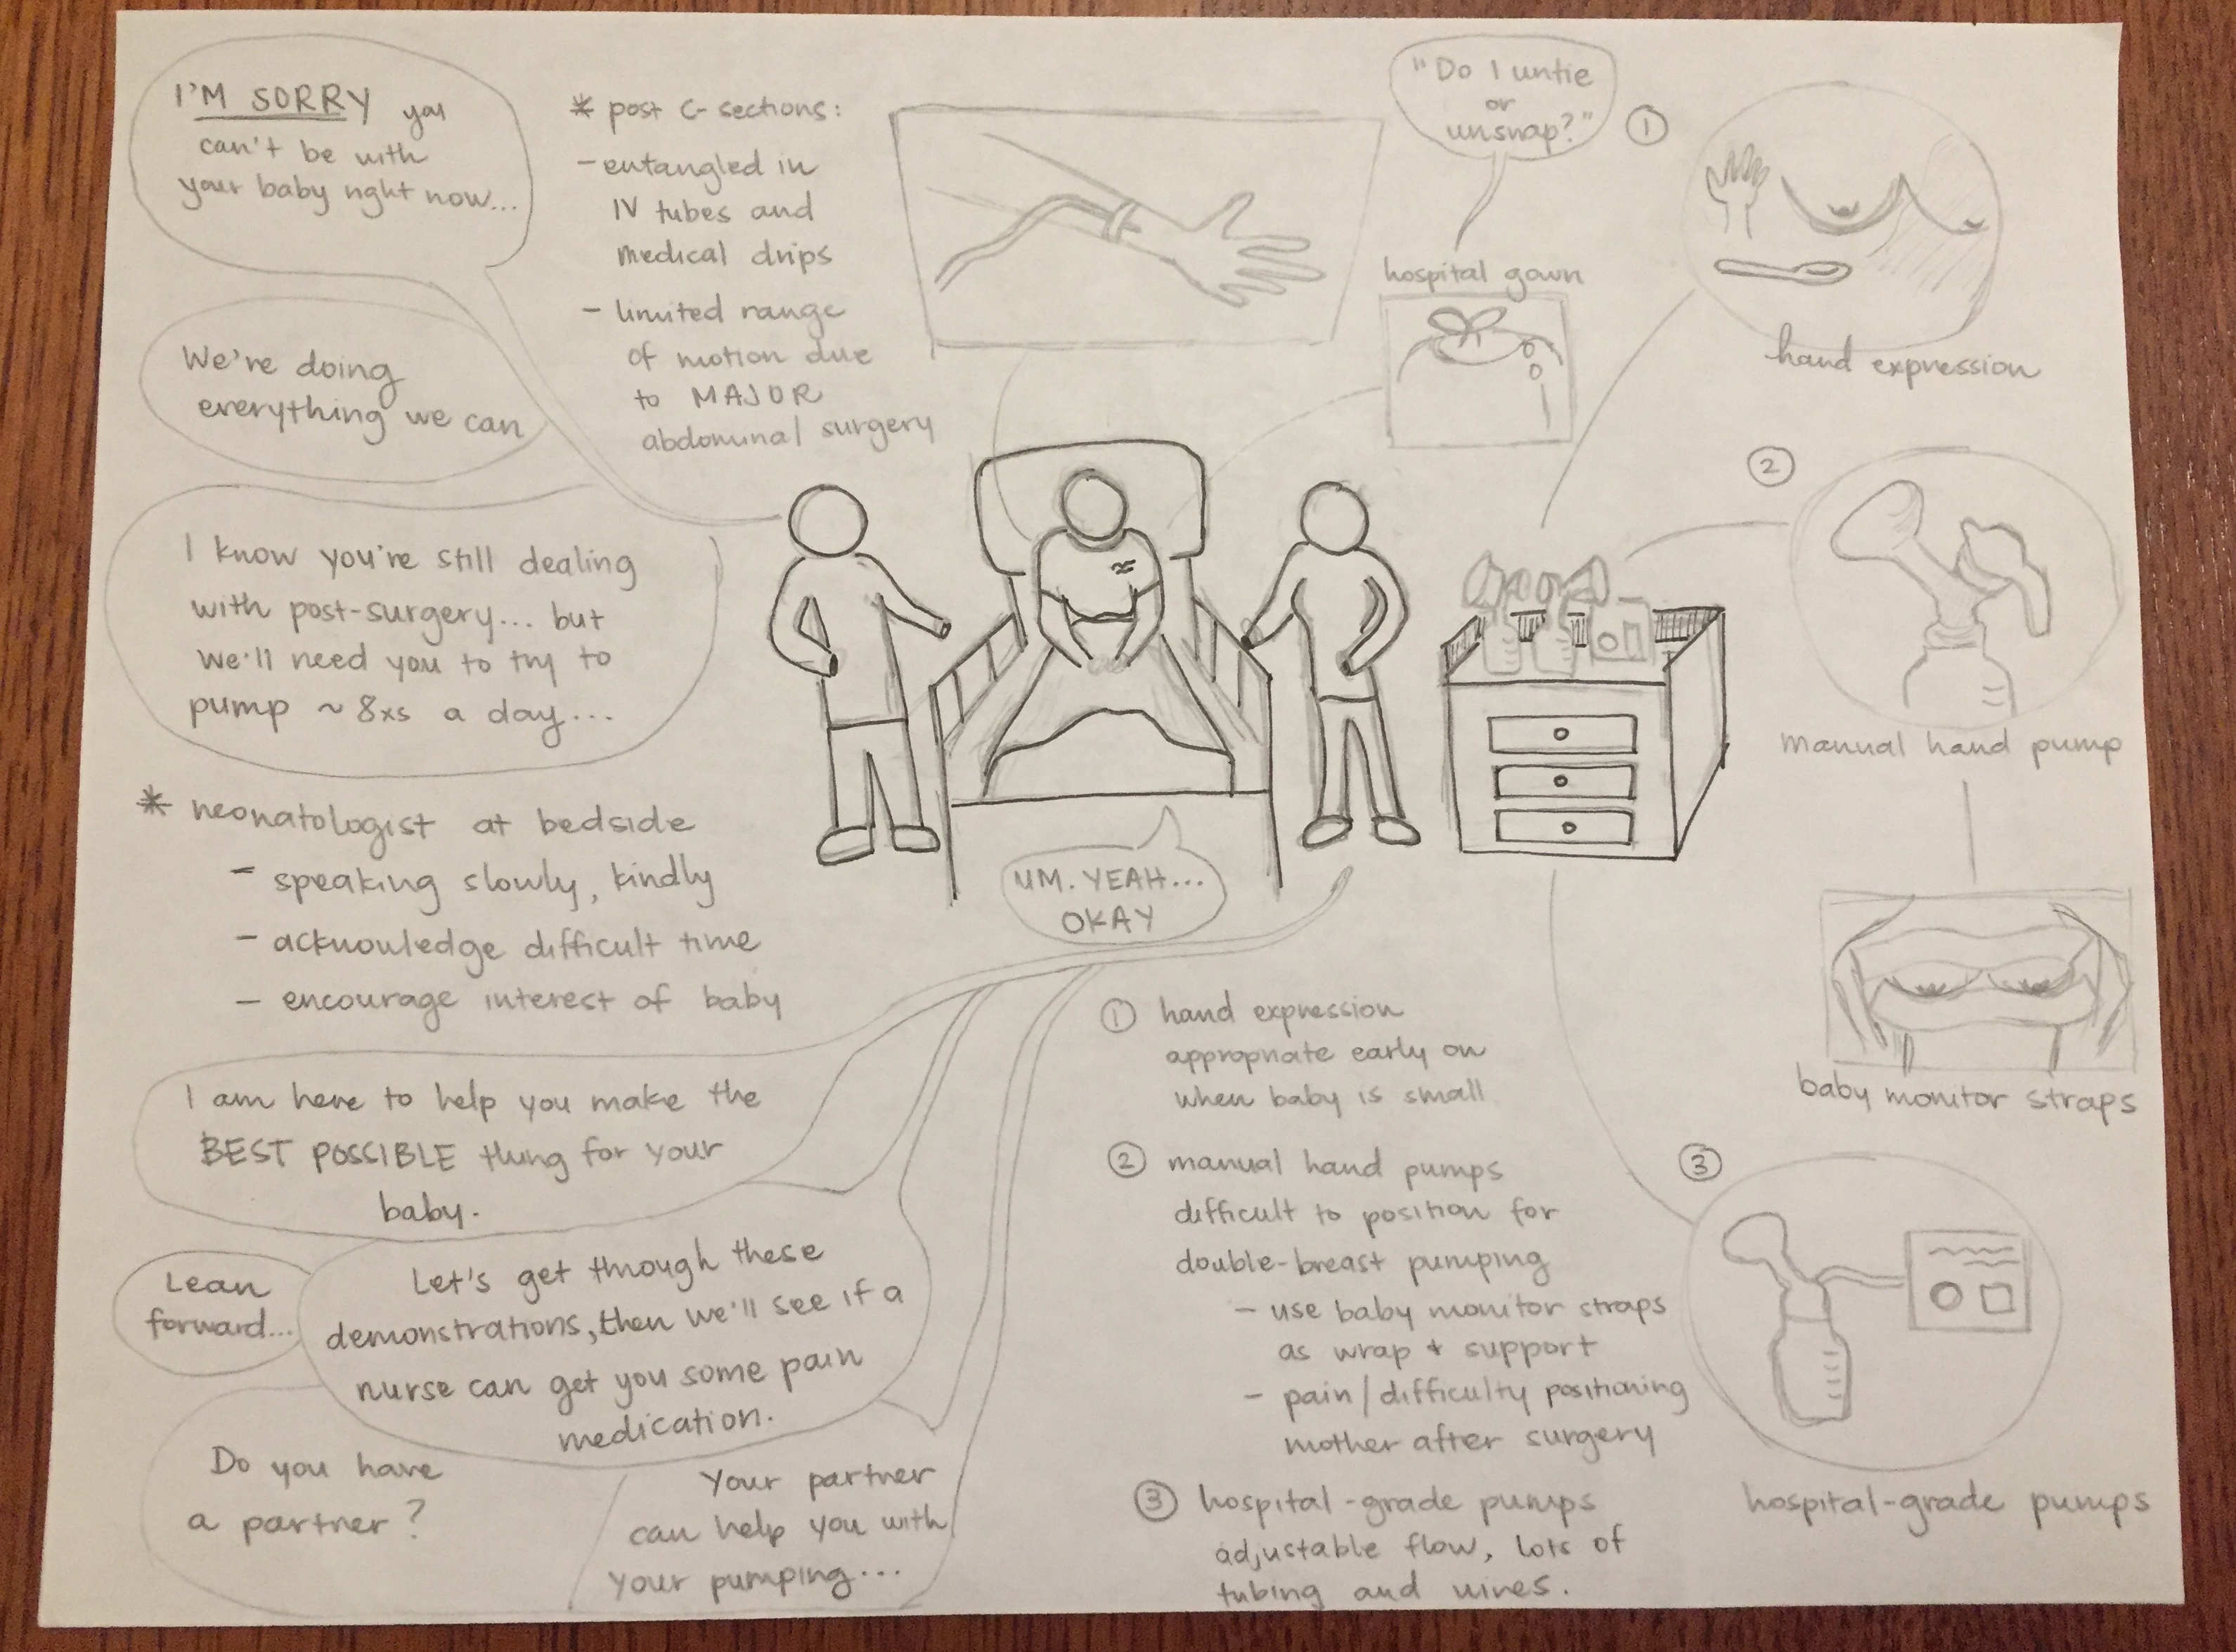 I'M SORRY you
can't be with
your baby right now...
We're doing
everything we can
I know you're still dealing
with post-surgery... but
we'll need you to try to
pump ~8xs a day...
* neonatologist at bedside
- speaking slowly, kindly
- acknowledge difficult time
- encourage interest of baby
* post C-sections:
- entangled in
IV tubes and
medical drips
- limited range
of motion due
to MAJOR
abdominal surgery
"Do I untie
or
unsnap?"
hospital gown
1
hand expression
2
manual hand pump
baby monitor straps
3
hospital-grade pumps
UM. YEAH...
OKAY
I am here to help you make the
BEST POSSIBLE thing for your
baby.
Lean
forward...
Let's get through these
demonstrations, then we'll see if a
nurse can get you some pain
medication.
Do you have
a partner?
Your partner
can help you with
your pumping...
1 hand expression
appropriate early on
when baby is small
2 manual hand pumps
difficult to position for
double-breast pumping
- use baby monitor straps
as wrap + support
- pain/difficulty positioning
mother after surgery
3 hospital-grade pumps
adjustable flow, lots of
tubing and wires.